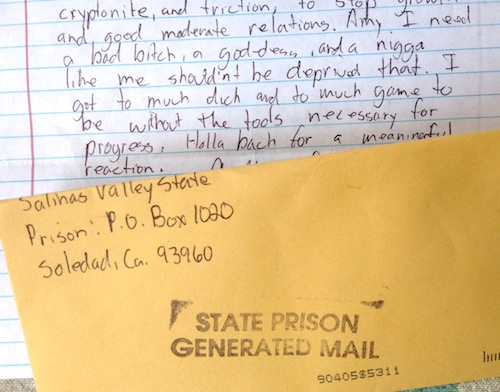 cryptonite, and friction, to stop
and good moderate relations. Amy I need
a bad bitch, a god-dess, and a nigga
like me should'nt be deprived that. I
got to much dich and to much game to
be without the tools necessary for
progress. Holla bach for a meaninful
reaction.
Salinas Valley State
Prison: P.O. Box 1020
Soledad, Ca. 93960
STATE PRISON
GENERATED MAIL
90405$5311